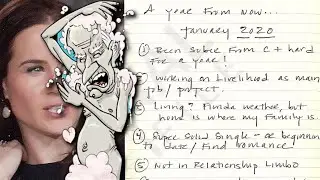 A year from now...
January 2020
① Been sober from C + hard
for a year!
② working on Livelihood as main
job/project.
③ Living? Florida weather, but
home is where my family is.
④ Super Solid Single - or beginning
to date/find romance!
⑤ Not in Relationship Limbo